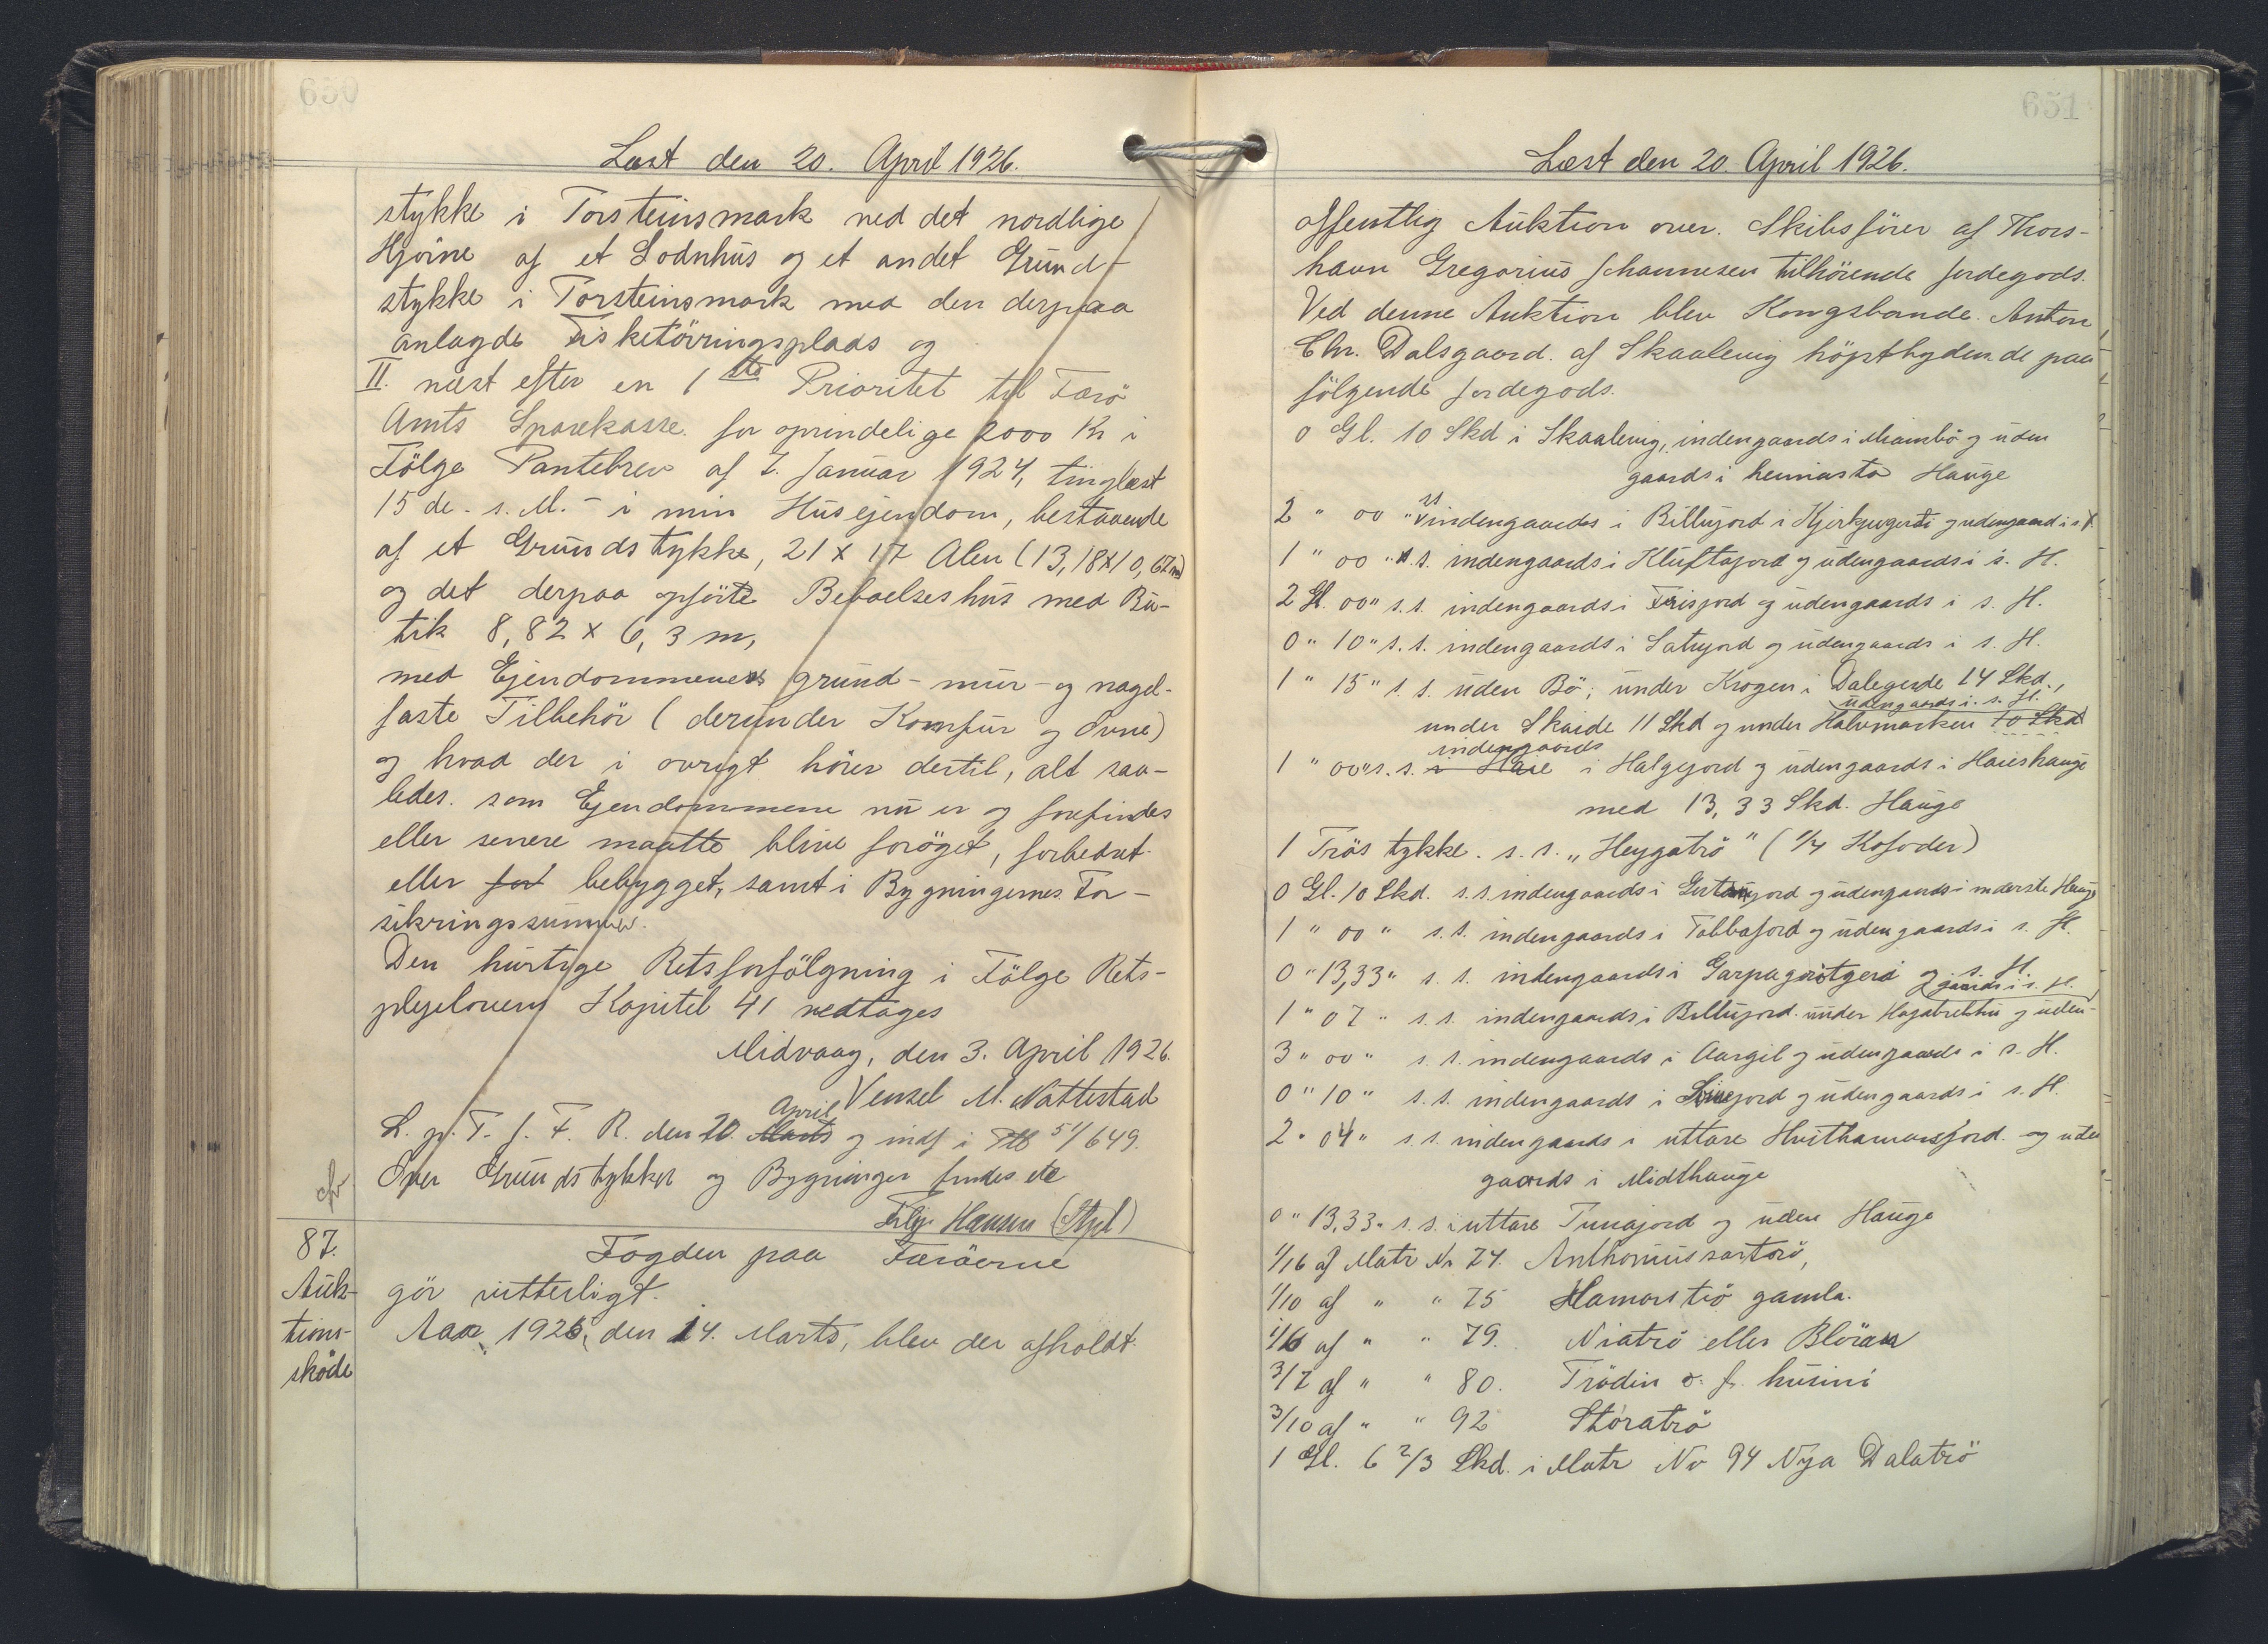 650
Læst den 20. April 1926.
stykke i Torsteinsmark ved det nordlige
Hjörne af et Lodnhús og et andet Grund-
stykke i Torsteinsmark med den derpaa
anlagde Fisketörringsplads og
II. næst efter en 1ste Prioritet til Færö
Amts Sparekasse for oprindelige 2000 Kr i
Fölge Pantebrev af 7. Januar 1924, tinglæst
15 de. s. M. - i min Húsejendom, bestaaende
af et Grundstykke, 21 x 17 Alen (13,18 x 10,67 m)
og det derpaa opförte Beboelseshus med Bu-
tik 8,82 x 6,3 m,
med Ejendommenes grund- mur- og nagel-
faste Tilbehör (derunder Komfur og Ovne)
og hvad der i övrigt hörer dertil, alt saa-
ledes som Ejendommene nu er og forefindes
eller senere maatte blive foröget, forbedret
eller for bebygget, samt i Bygningernes For-
sikringssummer.
Den hurtige Retsforfölgning i Fölge Rets-
plejelovens Kapitel 41 vedtages
Midvaag, den 3. April 1926.
Venzel M. Nattestad
April
L. p. T. f. F. R. den 20. Marts og indf i 51/649.
Over Grundstykker og Bygninger findes etc
Filip Hansen (Stpl)
87.
Auk-
tions-
sköde
Fogden paa Færöerne
gör vitterligt.
Aar 1926, den 14. Marts, blev der afholdt
651
Læst den 20. April 1926.
offentlig Auktion over Skibsförer af Thors-
havn Gregorius Johannesen tilhörende Jordegods.
Ved denne Auktion blev Kongsbonde Anton
Chr. Dalsgaard af Skaalevig höjstbydende paa
fölgende Jordegods.
0 Gl. 10 Skd i Skaalevig, indengaards i og uden
gaards i heimasta Hauge
2 " 00 " s. s. indengaards i Billujord i og udengaards i s. H.
1 " 00 " s. s. indengaards i Kluftajord og udengaards i s. H.
2 Gl. 00 " s. s. indengaards i og udengaards i s. H.
0 " 10 " s. s. indengaards i og udengaards i s. H.
1 " 15 " s. s. uden Bö; under Krogen i Dalegerde 14 Skd.,
udengaards i s. H.
under Skaide 11 Skd og under Halvmarken 10 Skd
indengaards
1 " 00 " s. s. i Halgejord og udengaards i Hauge
med 13,33 Skd. Hauge
1 Tröstykke s. s. "Heygatrö" (1/4 Kofoder)
0 Gl. 10 Skd. s. s. indengaards i og udengaards i inderste Hauge
1 " 00 " s. s. indengaards i og udengaards i s. H.
0 " 13,33 " s. s. indengaards i og s. H.
gaards i s. H.
1 " 07 " s. s. indengaards i Billujord under og uden-
3 " 00 " s. s. indengaards i Aargil og udengaards i s. H.
0 " 10 " s. s. indengaards i og udengaards i s. H.
2 " 04 " s. s. indengaards i uttare og uden
gaards i Midthauge
0 " 13,33 " s. s. i uttare Tunajord og uden Hauge
1/16 af Matr No 74. Anthoniussartrö,
1/10 af " " 75 Hamarströ gamla.
1/6 af " " 79. Niatrö eller
3/7 af " " 80. Trödin o. f. husini
3/10 af " " 92 Stóratrö
1 Gl. 6 2/3 Skd. i Matr No 94 Nýa Dalatrö